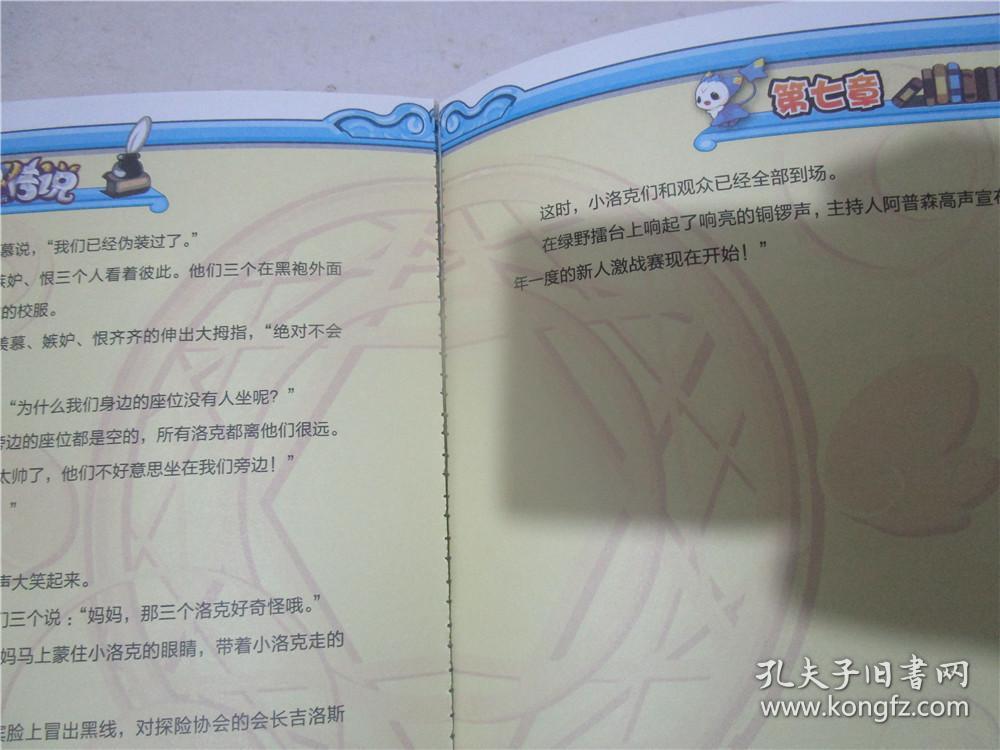 传说
慕说，“我们已经伪装过了。”
嫉妒、恨三个人看着彼此。他们三个在黑袍外面
的校服。
羡慕、嫉妒、恨齐齐的伸出大拇指，“绝对不会
“为什么我们身边的座位没有人坐呢？”
旁边的座位都是空的，所有洛克都离他们很远。
太帅了，他们不好意思坐在我们旁边！”
”
声大笑起来。
们三个说：“妈妈，那三个洛克好奇怪哦。”
妈马上蒙住小洛克的眼睛，带着小洛克走的
脸上冒出黑线，对探险协会的会长吉洛斯
第七章
这时，小洛克们和观众已经全部到场。
在绿野擂台上响起了响亮的铜锣声，主持人阿普森高声宣布
年一度的新人激战赛现在开始！”
孔夫子旧书网
www.kongfz.com